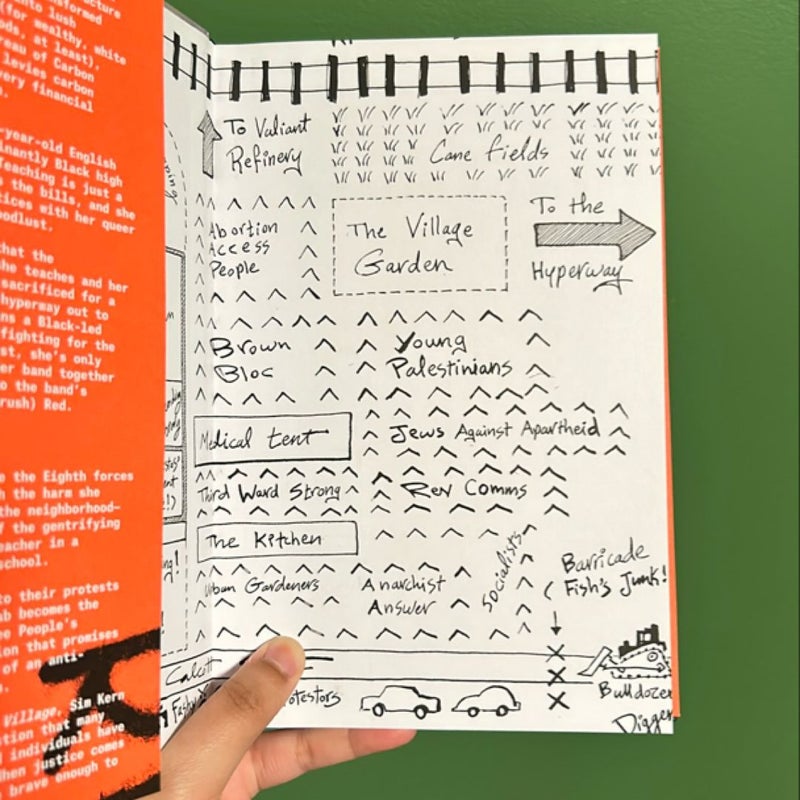 ructure
nsformed
into lush
(for wealthy, white
ods, at least),
reau of Carbon
levies carbon
very financial
-year-old English
inantly Black high
Teaching is just a
the bills, and she
tices with her queer
oodlust.
hat the
she teaches and her
sacrificed for a
hyperway out to
ns a Black-led
fighting for the
st, she's only
er band together
o the band's
rush) Red.
e the Eighth forces
h the harm she
the neighborhood—
f the gentrifying
eacher in a
school.
to their protests
ab becomes the
ee People's
ion that promises
of an anti-
Village, Sim Kern
tion that many
individuals have
hen justice comes
brave enough to
To Valiant
Refinery
Cane fields
Abortion
Access
People
The Village
Garden
To the
Hyperway
Brown
Bloc
Young
Palestinians
Medical tent
Jews Against Apartheid
Third Ward Strong
Rev Comms
The Kitchen
Socialists
Urban Gardeners
Anarchist
Answer
Barricade
Fish's Junk!
Calcott
otestors
Bulldozer
Digger